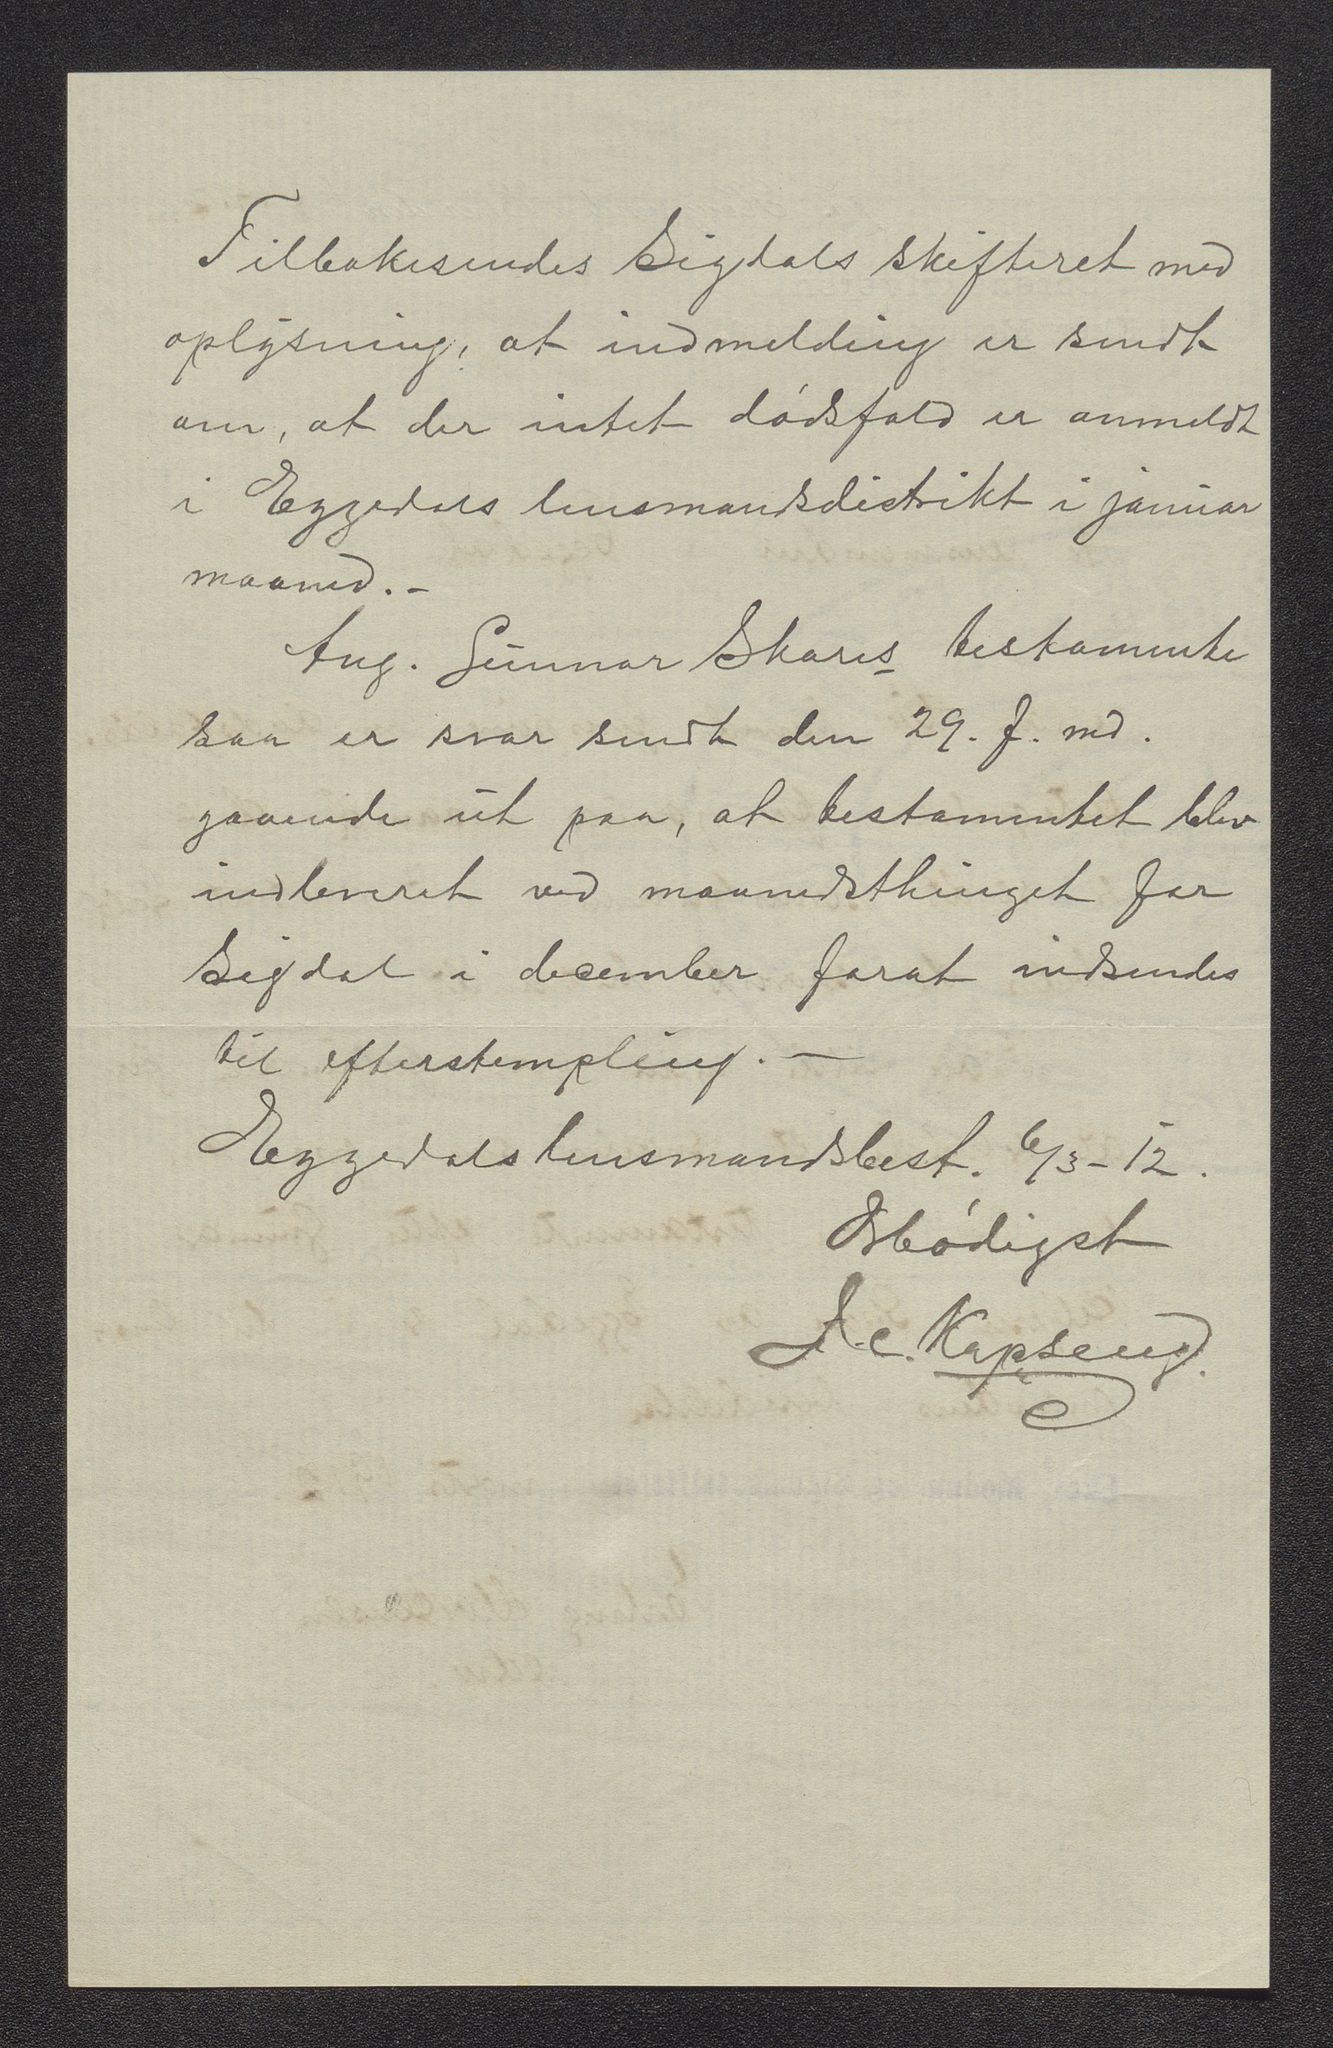 Tilbakesendes Sigdals skifteret med
oplysning, at indmelding er sendt
om, at der intet dødsfald er anmeldt
i Eggedals lensmandsdistrikt i januar
maaned.-
Ang. Gunnar Skares testamente
saa er svar sendt den 29. f. md.
gaaende ut paa, at testamentet blev
indleveret ved maanedsthinget for
Sigdal i december forat indsendes
til efterstempling. —
Eggedals lensmandsbest. 6/3-12.
Ærbødigst
A. C. Kopseng.